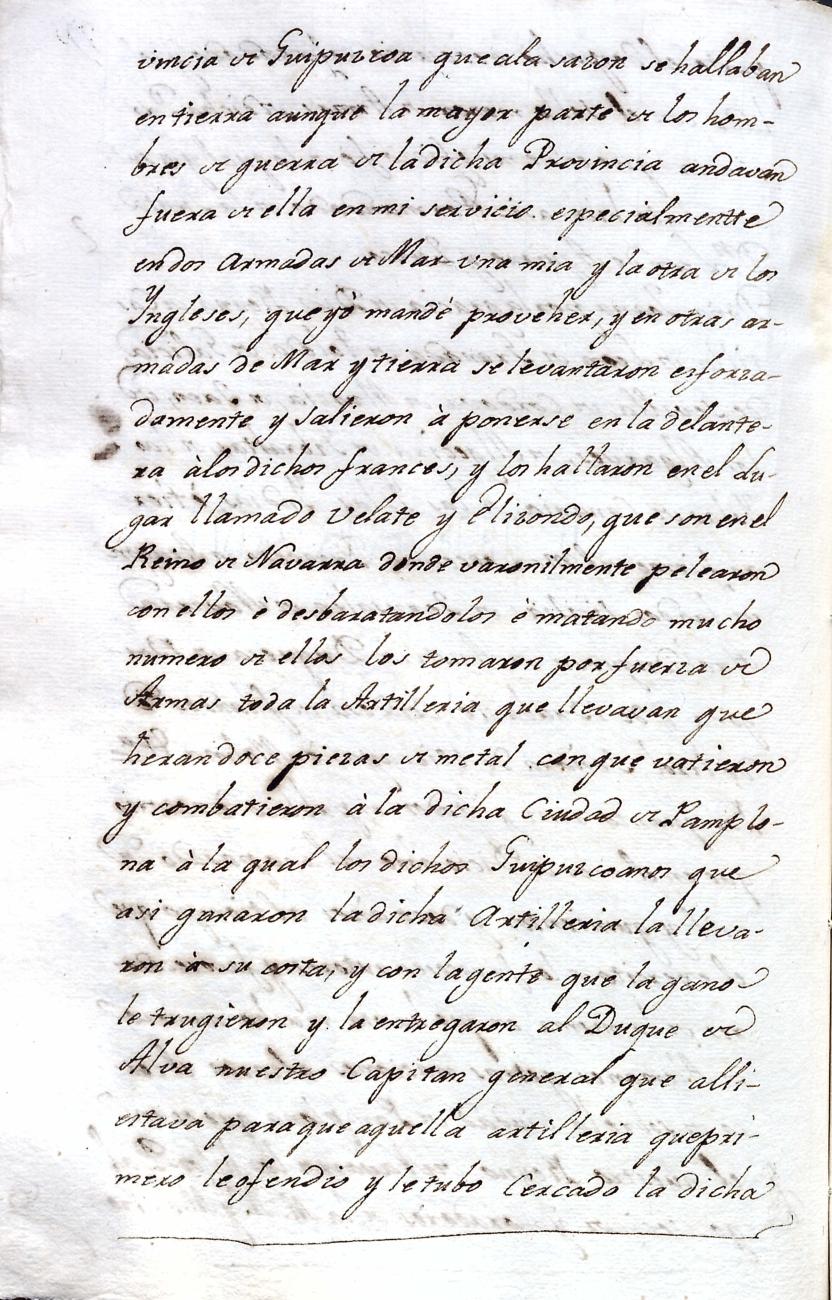 vincia de Guipuzcoa que ala sazon se hallaban
en tierra aunque la mayor parte de los hom-
bres de guerra de la dicha Provincia andavan
fuera de ella en mi servicio especialmentte
en dos Armadas de Mar una mia y la otra de los
Yngleses, que yò mandè proveher, y en otras ar-
madas de Mar y tierra se levantaron esforza-
damente y salieron à ponerse en la delante-
ra à los dichos frances, y los hallaron en el Lu-
gar llamado Velate y Elizondo, que son en el
Reino de Navarra donde varonilmente pelearon
con ellos è desbaratandolos è matando mucho
numero de ellos los tomaron por fuerza de
Armas toda la Artilleria que llevavan que
heran doce piezas de metal con que vatieron
y combatieron à la dicha Ciudad de Pamplo-
na à la qual los dichos Guipuzcoanos que
asi ganaron la dicha Artilleria la lleva-
ron à su costa, y con la gente que la gano
le trugieron y la entregaron al Duque de
Alva nuestro Capitan general que alli-
estava para que aquella artilleria que pri-
mero le ofendio y le tubo Cercado la dicha